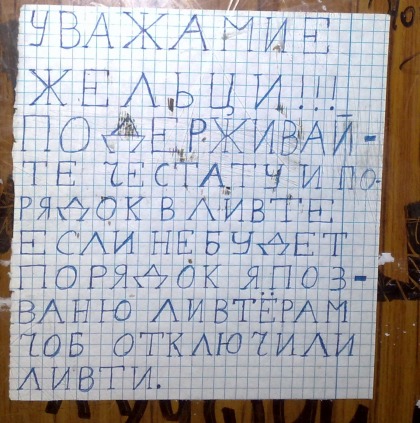 УВАЖАМИЕ
ЖЕЛЬЦИ!!!
ПОДЕРЖИВАЙ-
ТЕ ЧЕСТАТУ И ПО-
РЯДОК В ЛИВТЕ
ЕСЛИ НЕ БУДЕТ
ПОРЯДОК Я ПОЗ-
ВАНЮ ЛИВТЁРАМ
ЧОБ ОТКЛЮЧИЛИ
ЛИВТИ.